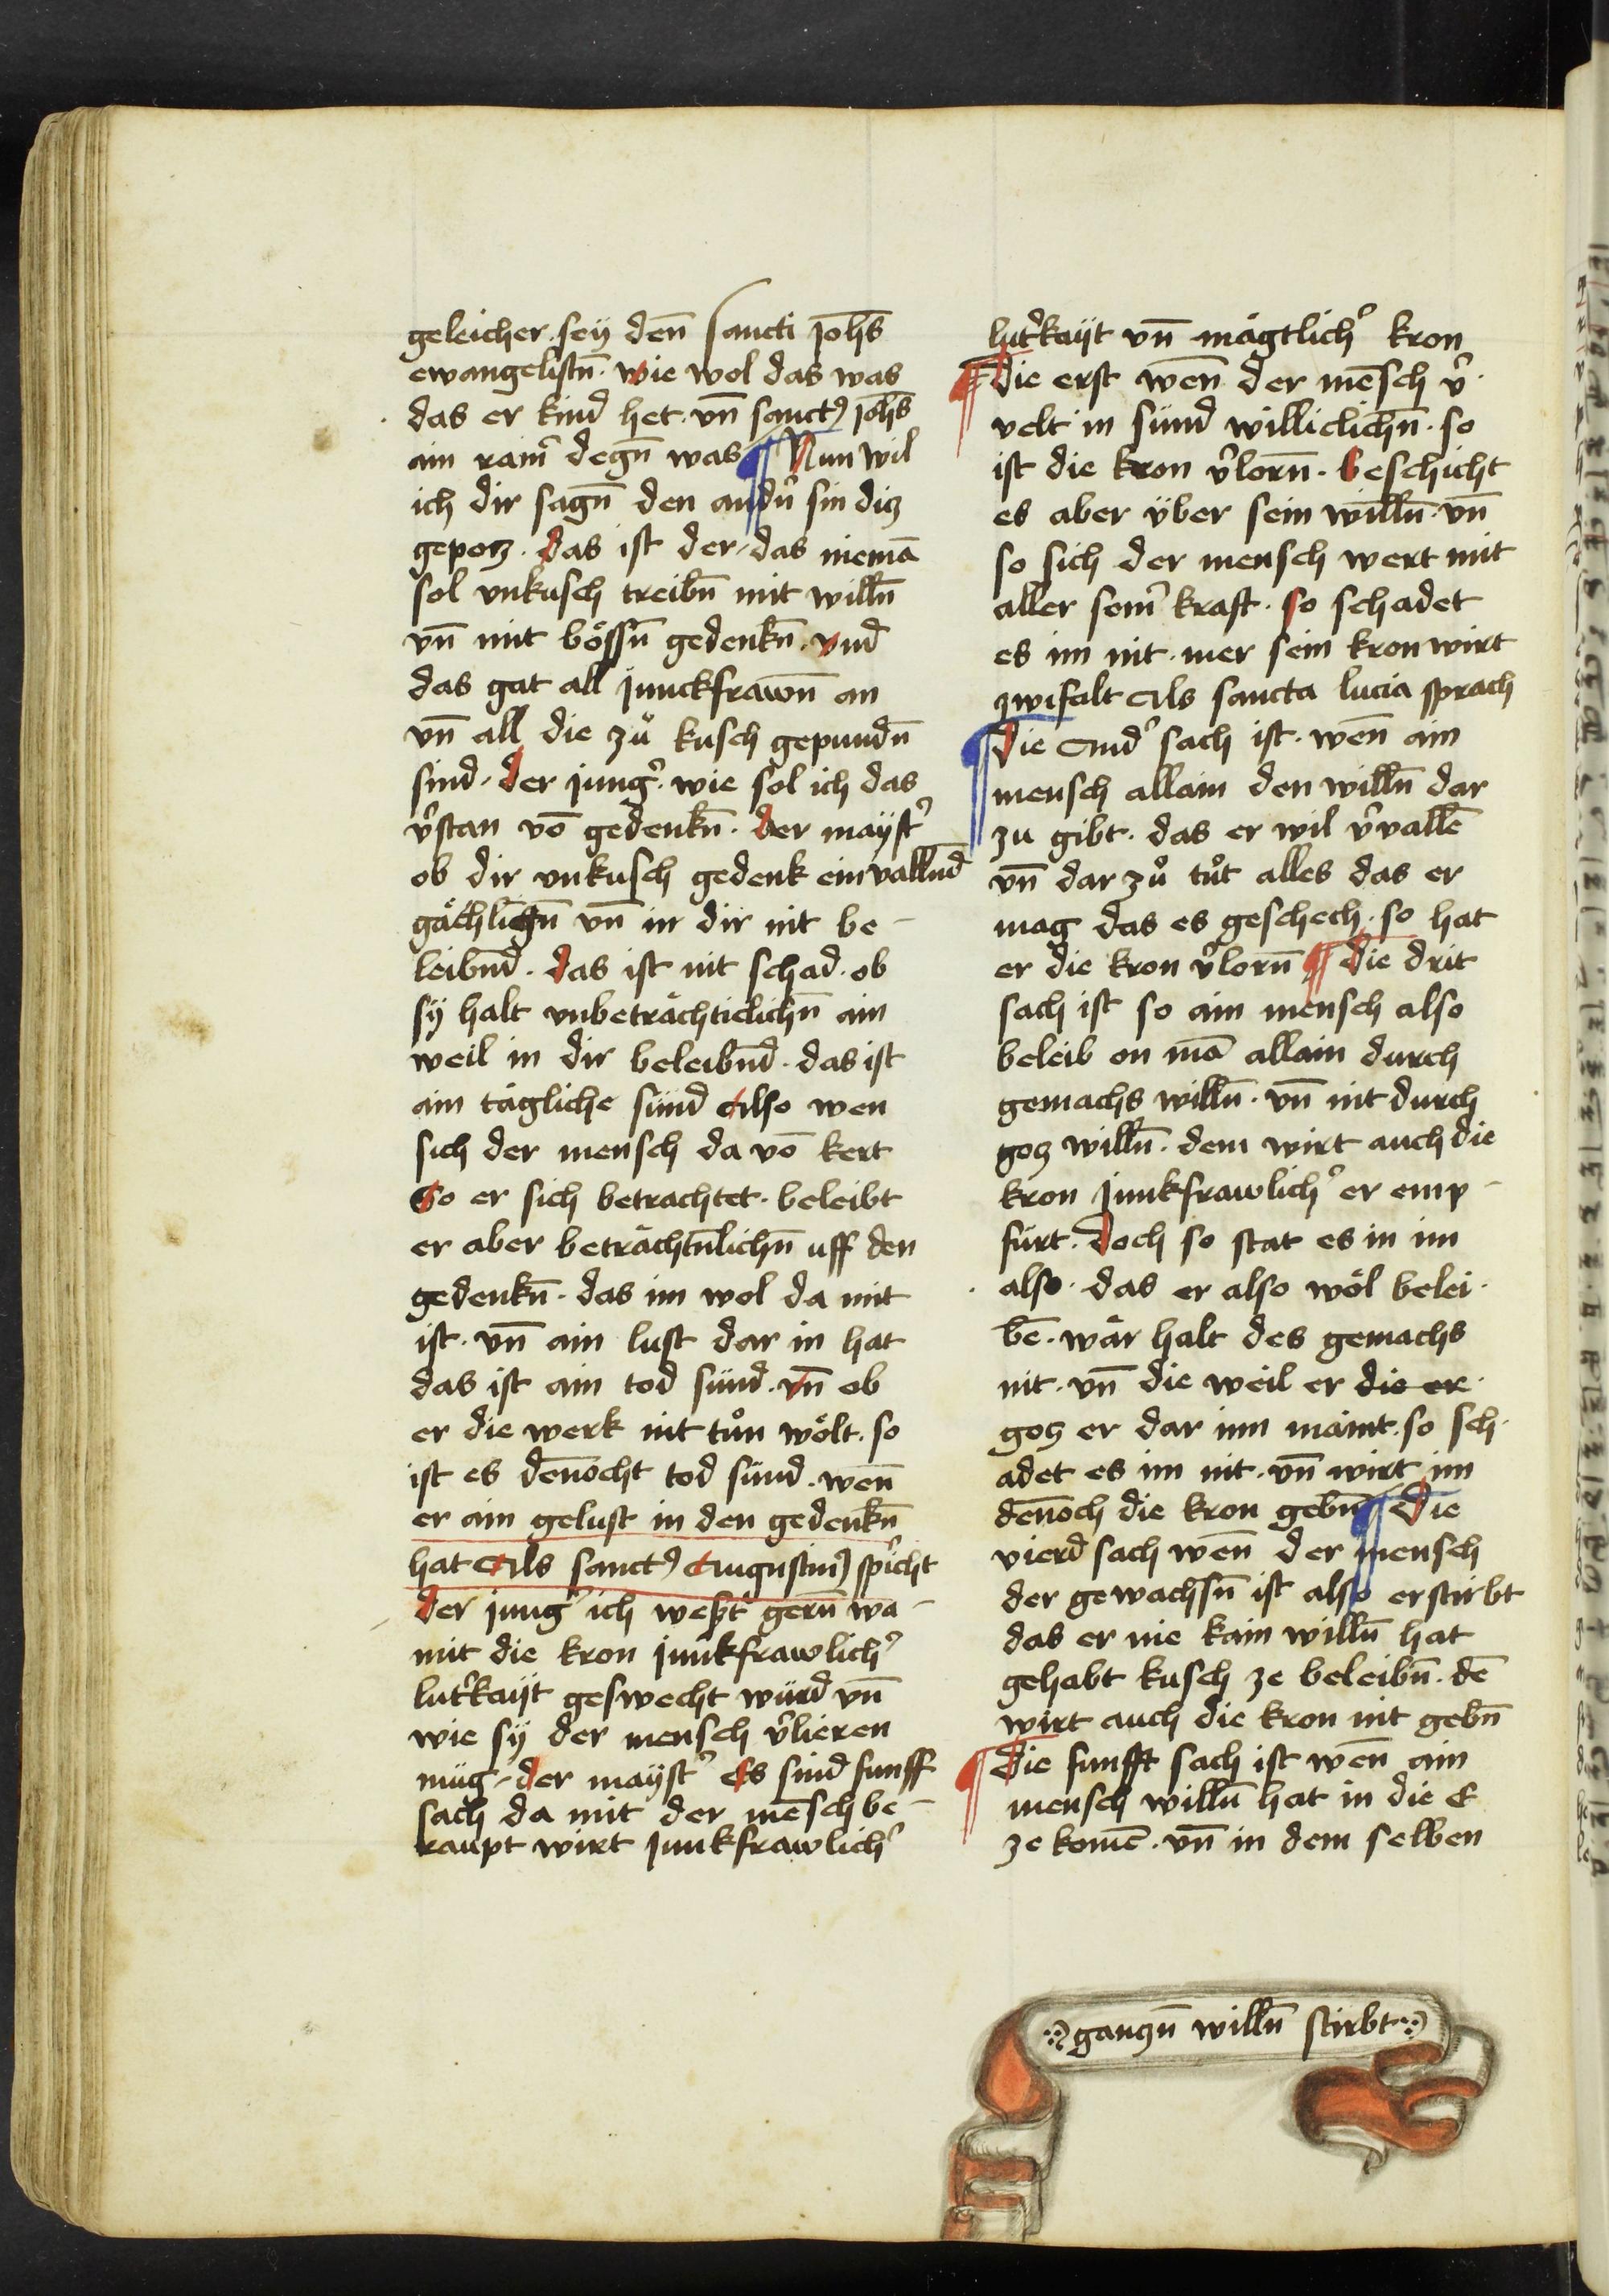 geleicher · sey den̄ sancti joh̄s
ewangelistn̄ · wie wol das was
das er kind het · vn̄ sanctꝰ joh̄s
ain rain̾ degn̄ was ¶ Nun wil
ich dir sagn̄ den andn̾ sin dicz
gepotz · das ist der / das niemā
sol vnkusch treibn̄ mit willn̄
vn̄ mit bössn̄ gedenkn̄ · vnd
das gat all junckfrawn̄ an
vn̄ all die zů kusch gepundn̄
sind · der jung̾ · wie sol ich das
v̾stan vō gedenkn̄ · der mayst̾
ob dir vnkusch gedenk einvallnd̄
gächlichn̄ vn̄ in dir nit be-
leibnd̄ · das ist nit schad · ob
sy halt vnbeträchticlichn̄ ain
weil in dir beleibnd̄ · das ist
ain tägliche sünd Also wen
sich der mensch da vō kert
So er sich betrachtet · beleibt
er aber beträchtn̄lichn̄ uff den
gedenkn̄ · das im wol da mit
ist · vn̄ ain lust dar in hat
das ist ain tod sünd · vn̄ ob
er die werk nit tůn wölt · so
ist es den̄ocht tod sünd · wen̄
er ain gelust in den gedenkn̄
hat Als sanctꝰ Augustinꝰ sp̾icht
der jung̾ ich west gern̄ wa-
mit die kron junkfrawlich̾
lut̾kayt geswecht würd vn̄
wie sy der mensch v̾lieren
müg / der mayst̾ Es sind funff
sach da mit der mēsch be-
raupt wirt junkfrawlich̾
lut̾kayt vn̄ mägtlich̾ kron
¶ Die erst wen̄ der mēsch v̾ ·
velt in sünd williclichn̄ · so
ist die kron v̾lorn̄ · Beschicht
es aber über sein willn̄ · vn̄
so sich der mensch wert mit
aller sein̾ kraft · so schadet
es im nit · mer sein kron wirt
zwifalt Als sancta lucia sprach
¶ Die And̾ sach ist · wen̄ ain
mensch allain den willn̄ dar
zu gibt · das er wil v̾vallē
vn̄ dar zů tůt alles das er
mag das es geschech · so hat
er die kron v̾lorn̄ ¶ Die drit
sach ist so ain mensch also
beleib on mā allain durch
gemachs willn̄ · vn̄ nit durch
gotz willn̄ · dem wirt auch die
kron junkfrawlich̾ er emp-
fürt · Doch so stat es in im
also · das er also wöl belei ·
bē · wär halt des gemachs
nit · vn̄ die weil er die er ·
gotz er dar inn maint · so sch ·
adet es im nit · vn̄ wirt im
den̄och die kron gebn̄ ¶ Die
vierd sach wen̄ der mensch
der gewachsn̄ ist also erstirbt
das er nie kain willn̄ hat
gehabt kusch ze beleibn̄ · dē
wirt auch die kron nit gebn̄
¶ Die funfft sach ist wen̄ ain
mensch willn̄ hat in die E
ze komē · vn̄ in dem selben
gantzn̄ willn̄ stirbt